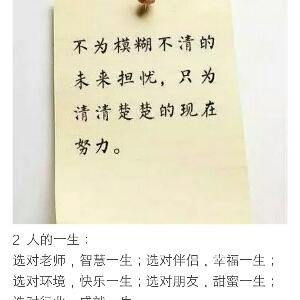 不为模糊不清的
未来担忧，只为
清清楚楚的现在
努力。
2 人的一生：
选对老师，智慧一生；选对伴侣，幸福一生；
选对环境，快乐一生；选对朋友，甜蜜一生；
选对行业，成就一生